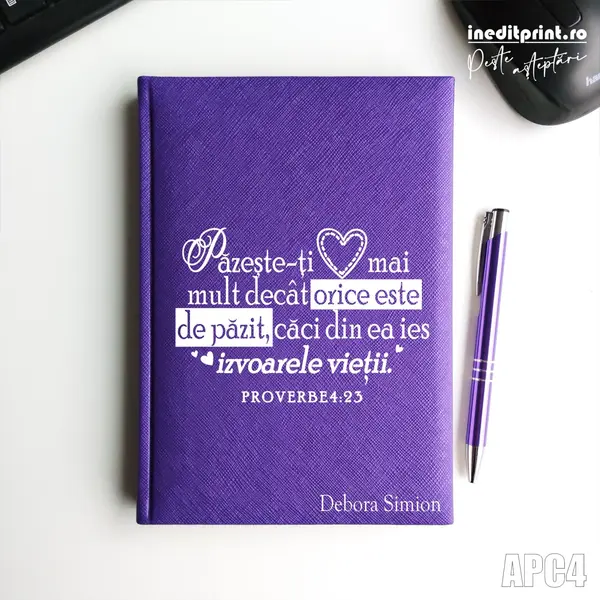 ineditprint.ro
Peste așteptări
Păzește-ți mai
mult decât orice este
de păzit, căci din ea ies
izvoarele vieții.
PROVERBE4:23
Debora Simion
APC4